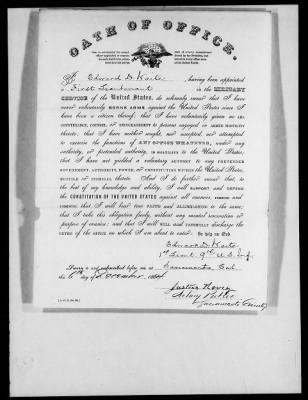 OATH OF OFFICE.
I, Edward D. Waite, having been appointed
a First Lieutenant in the MILITARY
SERVICE of the United States, do solemnly swear that I have
never voluntarily BORNE ARMS against the United States since
I have been a citizen thereof; that I have voluntarily given no AID,
COUNTENANCE, COUNSEL, or ENCOURAGEMENT to persons engaged in ARMED HOSTILITY
thereto; that I have neither sought, nor accepted, nor attempted
to exercise the functions of ANY OFFICE WHATEVER, under any
authority, or pretended authority, IN HOSTILITY to the United States;
that I have not yielded a voluntary support to ANY PRETENDED
GOVERNMENT, AUTHORITY, POWER, or CONSTITUTION WITHIN the UNITED STATES,
HOSTILE or INIMICAL thereto. And I do further swear that, to
the best of my knowledge and ability, I will SUPPORT and DEFEND
the CONSTITUTION OF THE UNITED STATES against all enemies, FOREIGN and
DOMESTIC; that I will bear TRUE FAITH and ALLEGIANCE to the same;
that I take this obligation freely, without any mental reservation or
purpose of evasion; and that I will WELL and FAITHFULLY discharge the
DUTIES OF THE OFFICE on which I am about to enter: So help me God
Edward D. Waite
1st Lieut 9th U.S. Inf.
Sworn to and subscribed before me at Sacramento Cal.
this day of December 1864
Notary Public
Sacramento County